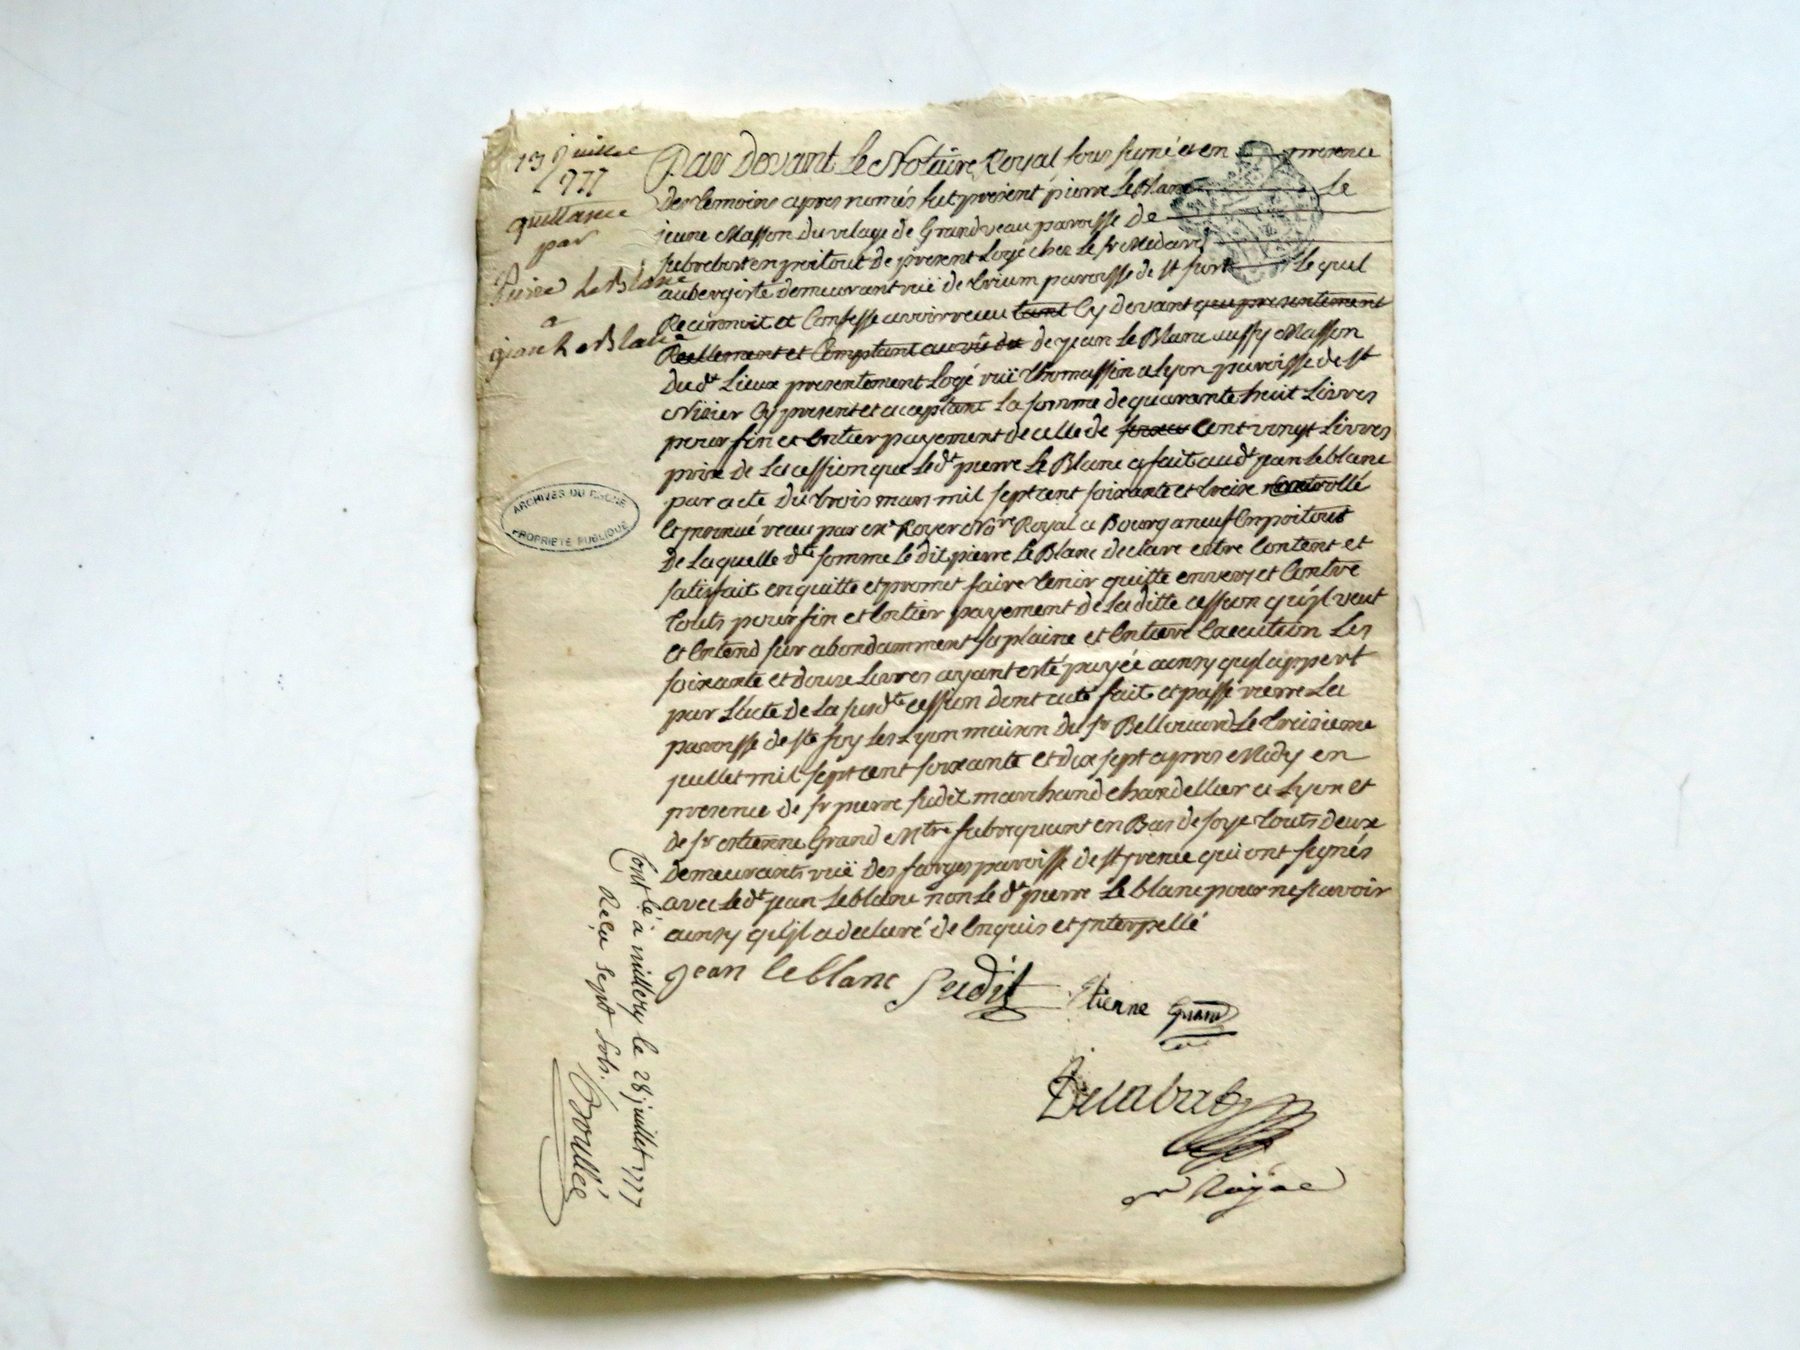 13 juillet
1777
quittance
par
Pierre Le Blanc
a
jean Le Blanc
Par Devant Le Notaire Royal sous signé et en presence
Des temoins apres només fut present pierre Le Blanc Le
jeune Masson du vilage de Grandveau paroisse de
en poitout De present Logé chez Le Sr Medard
aubergiste demeurant ruë de trium paroisse de St Lequel
Reconnoit et Confesse avoir receu tant Cy devant que presentement
Reellement et Comptant au vû de jean Le Blanc aussy Masson
Dud't Lieux presentement Logé ruë Thomassin a Lyon paroisse de St
Nisier Cy present et acceptant La somme de quarante huit Livres
pour fin et Entier payement de celle de Cent vingt Livres
prix de La cession que Led't pierre Le Blanc a fait aud't jean Leblanc
par acte du trois mars mil sept cent soixante et treize Controllé
et receu par Me Royer Nore Royal a Bourganeuf En poitout
De Laquelle d'te somme Le dit pierre Le Blanc declare estre Content et
satisfait en quitte et promet faire tenir quitte envers et Contre
touts pour fin et Entier payement de La ditte cession qu'jl veut
et Entend sur abondamment sa plaine et Entiere Execution Les
soixante et douze Livres ayant esté payée ainsy qu'jl appert
par L'acte de La susd'te cession dont acte fait et passé riere La
paroisse de Ste foy Les Lyon maison du Sr Bellouard Le treisieme
juillet mil sept cent soixante et dix sept apres Midy en
presence de Sr pierre Sudit marchand chandellier a Lyon et
de Sr etienne Grand Mtre fabriquant en Bas de soye touts deux
demeurants ruë Des farges paroisse de St jrenée qui ont signés
avec Led't jean Leblanc non Le d't pierre Le blanc pour ne scavoir
ainsy qu'jl a declaré de Enquis et jnterpellé
jean leblanc Sudit Etienne Grand
Delabal
Royal
Cont'lé à millery le 28 juillet 1777
Reçu sept sols.
Boullée
ARCHIVES DU RHÔNE
PROPRIÉTÉ PUBLIQUE